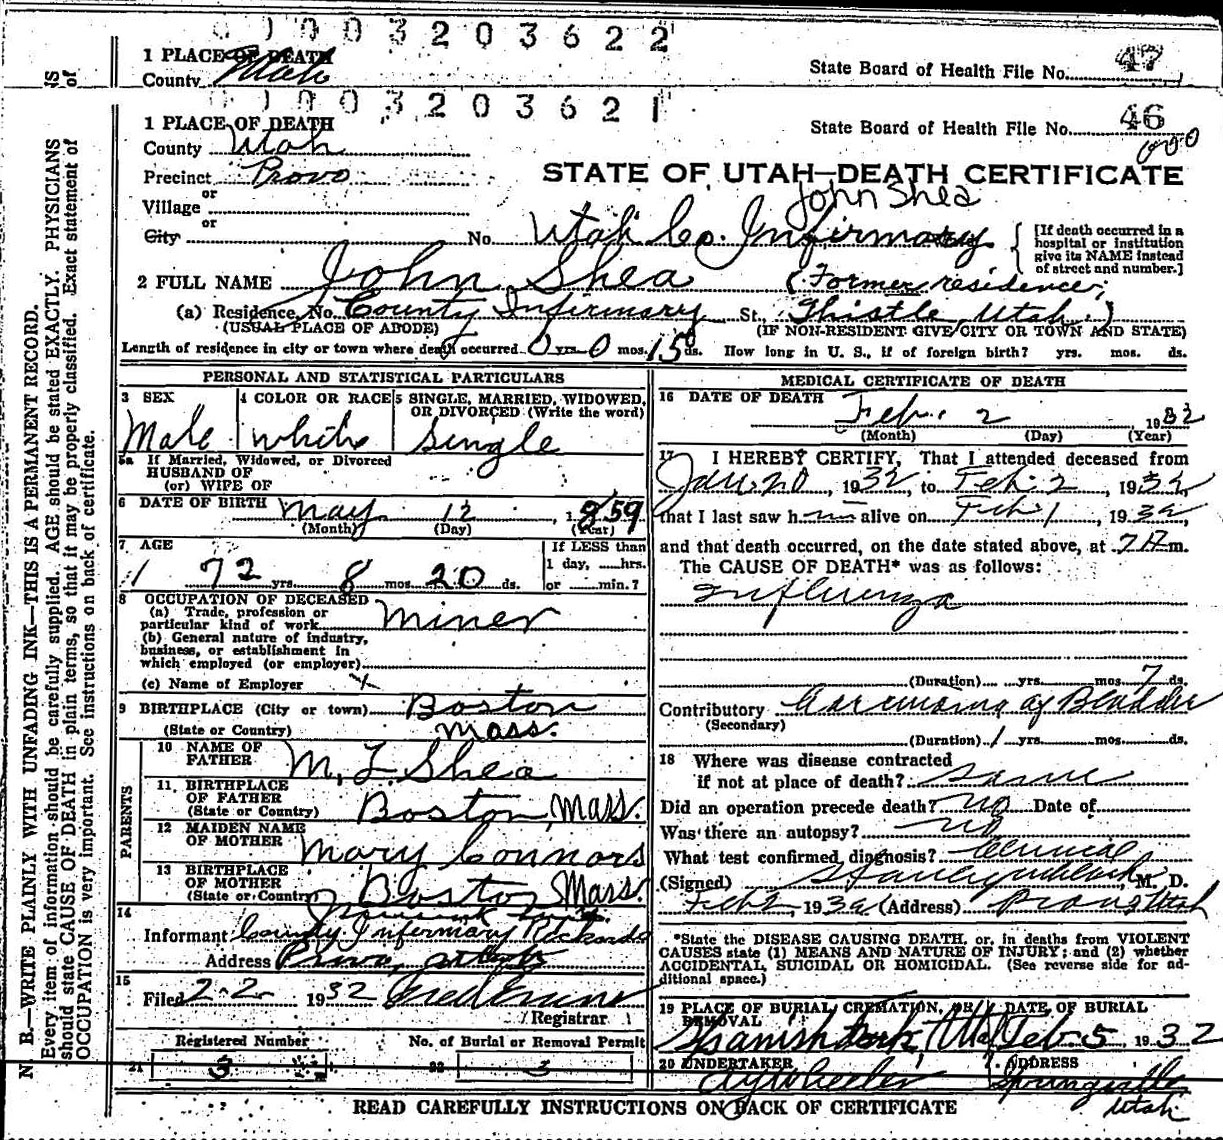 0003203622
1 PLACE OF DEATH
County Utah
State Board of Health File No. 47
0003203621
1 PLACE OF DEATH
State Board of Health File No. 46
County Utah
Precinct Provo
STATE OF UTAH—DEATH CERTIFICATE
or
Village
John Shea
or
City No. Utah Co. Infirmary
[If death occurred in a hospital or institution give its NAME instead of street and number.]
2 FULL NAME John Shea (Former residence,
(a) Residence, No. County Infirmary St., Thistle, Utah.)
(USUAL PLACE OF ABODE) (IF NON-RESIDENT GIVE CITY OR TOWN AND STATE)
Length of residence in city or town where death occurred 0 yrs. 0 mos. 15 ds. How long in U. S., if of foreign birth? yrs. mos. ds.
PERSONAL AND STATISTICAL PARTICULARS
3 SEX
Male
4 COLOR OR RACE
White
5 SINGLE, MARRIED, WIDOWED, OR DIVORCED (Write the word)
Single
5a If Married, Widowed, or Divorced
HUSBAND OF
(or) WIFE OF
6 DATE OF BIRTH May 12, 1859
(Month) (Day) (Year)
7 AGE
72 yrs. 8 mos. 20 ds.
If LESS than
1 day, hrs.
or min.?
8 OCCUPATION OF DECEASED
(a) Trade, profession or
particular kind of work Miner
(b) General nature of industry,
business, or establishment in
which employed (or employer)
(c) Name of Employer
9 BIRTHPLACE (City or town) Boston
(State or Country) Mass.
PARENTS
10 NAME OF
FATHER M. L. Shea
11 BIRTHPLACE
OF FATHER
(State or Country) Boston, Mass.
12 MAIDEN NAME
OF MOTHER Mary Connors
13 BIRTHPLACE
OF MOTHER
(State or Country) Boston Mass.
14
Informant County Infirmary Records
Address Provo,
15
Filed 2-2- 1932
Registrar
Registered Number No. of Burial or Removal Permit
21 3 22 3
MEDICAL CERTIFICATE OF DEATH
16 DATE OF DEATH Feb. 2 1932
(Month) (Day) (Year)
17 I HEREBY CERTIFY, That I attended deceased from
Jan. 20, 1932, to Feb. 2, 1932,
that I last saw h im alive on Feb 1, 1932,
and that death occurred, on the date stated above, at 7 A m.
The CAUSE OF DEATH* was as follows:
Influenza
(Duration) yrs. mos. 7 ds.
Contributory Carcinoma of Bladder
(Secondary)
(Duration) 1 yrs. mos. ds.
18 Where was disease contracted
if not at place of death? Same
Did an operation precede death? no Date of
Was there an autopsy? no
What test confirmed diagnosis? Clinical
(Signed) Stanley M. Clark, M. D.
Feb 2, 1932 (Address) Provo Utah
*State the DISEASE CAUSING DEATH, or, in deaths from VIOLENT
CAUSES state (1) MEANS AND NATURE OF INJURY; and (2) whether
ACCIDENTAL, SUICIDAL OR HOMICIDAL. (See reverse side for ad-
ditional space.)
19 PLACE OF BURIAL, CREMATION, OR REMOVAL DATE OF BURIAL
Spanish Fork, Utah Feb 5 1932
20 UNDERTAKER ADDRESS
Wheeler Springville
Utah
READ CAREFULLY INSTRUCTIONS ON BACK OF CERTIFICATE
N. B.—WRITE PLAINLY WITH UNFADING INK—THIS IS A PERMANENT RECORD.
Every item of information should be carefully supplied. AGE should be stated EXACTLY. PHYSICIANS
should state CAUSE OF DEATH in plain terms, so that it may be properly classified. Exact statement of
OCCUPATION is very important. See instructions on back of certificate.